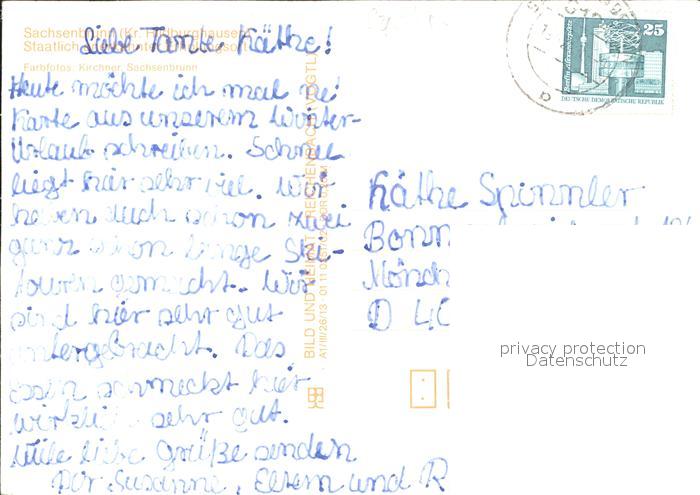 Sachsenbrunn (Kr. Hildburghausen)
Staatlich anerkannter Erholungsort
Farbfotos: Kirchner, Sachsenbrunn
Liebe Tante Käthe!
Heute möchte ich mal ne
Karte aus unserem Winter-
Urlaub schreiben. Schnee
liegt hier sehr viel. Wir
haben auch schon zwei
ganz schön lange Ski-
touren gemacht. Wir
sind hier sehr gut
untergebracht. Das
Essen schmeckt hier
wirklich sehr gut.
Viele liebe Grüße senden
Dir Susanne, Eltern und R
BILD UND HEIMAT REICHENBACH (VOGTL)
A1/III/26/13
Käthe Spinnler
Bonn
Mönch
D 40
25
Berlin, Alexanderplatz
DEUTSCHE DEMOKRATISCHE REPUBLIK
privacy protection
Datenschutz